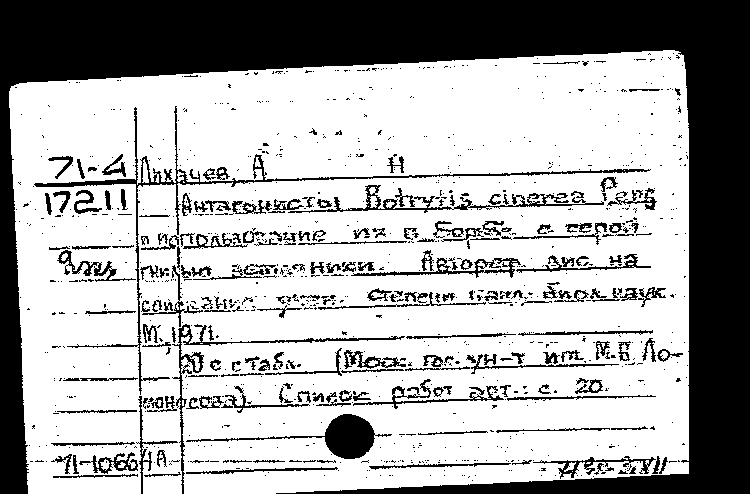 71-4 Лихачев, А Н
17211 Антагонисты Botrytis cinerea Pers
и использование их в борьбе с серой
гнилью земляники. Автореф дис на
соискание учен. степени канд. биол наук.
М., 1971.
20 с с табл. (Моск. гос. ун-т им. М.В Ло-
моносова). Список работ авт.: с. 20.
71-10664А